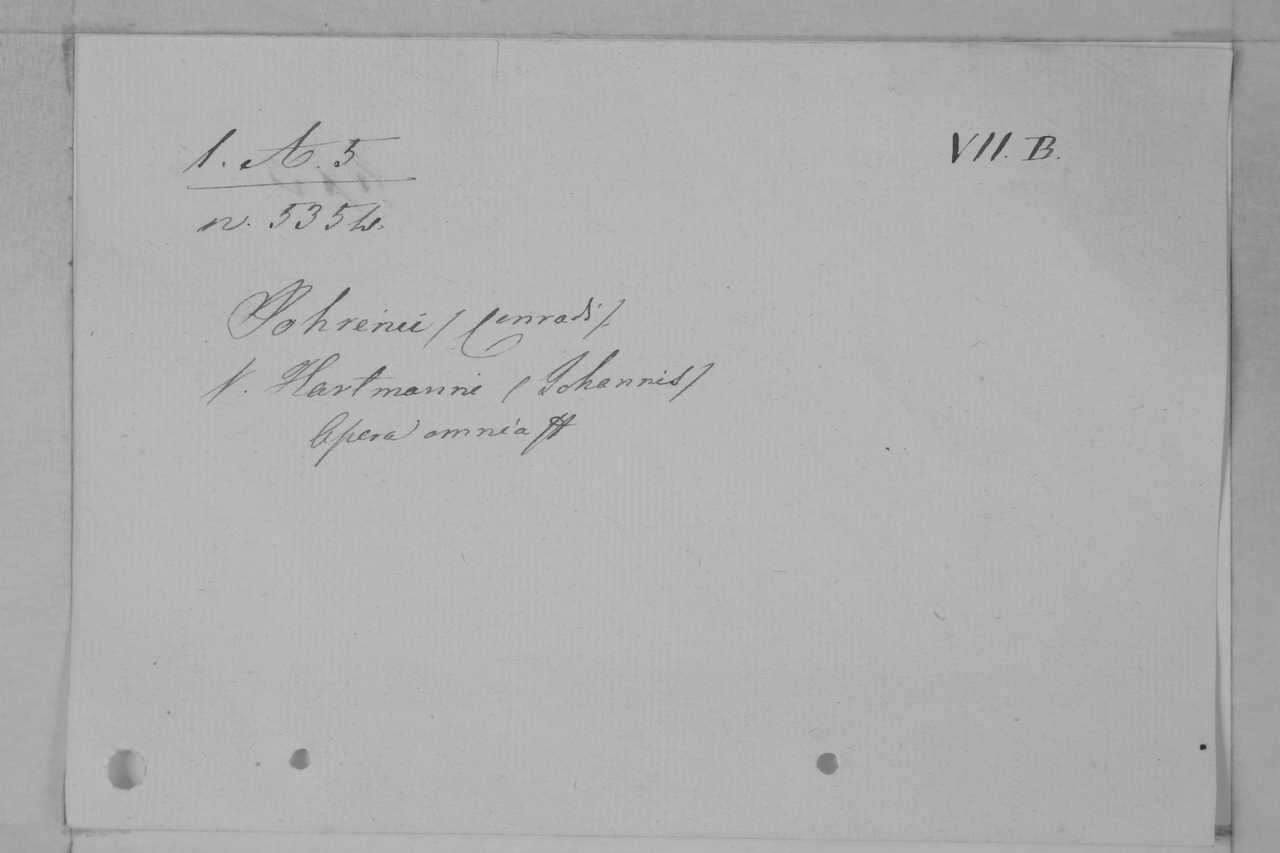 1. A. 5 VII. B.
n. 535b.
Johrenii / Conradi /
v. Hartmanni / Johannis /
Opera omnia